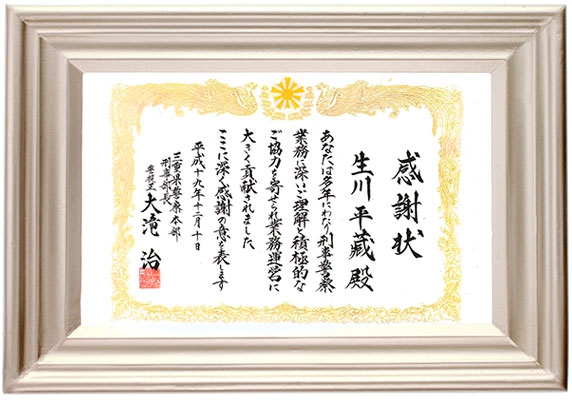 感謝状
生川平藏殿
あなたは多年にわたり刑事警察
業務に深いご理解と積極的な
ご協力を寄せられ業務運営に
大きく貢献されました
ここに深く感謝の意を表します
平成十九年十二月十日
三重県警察本部
刑事部長
警視正 大滝治